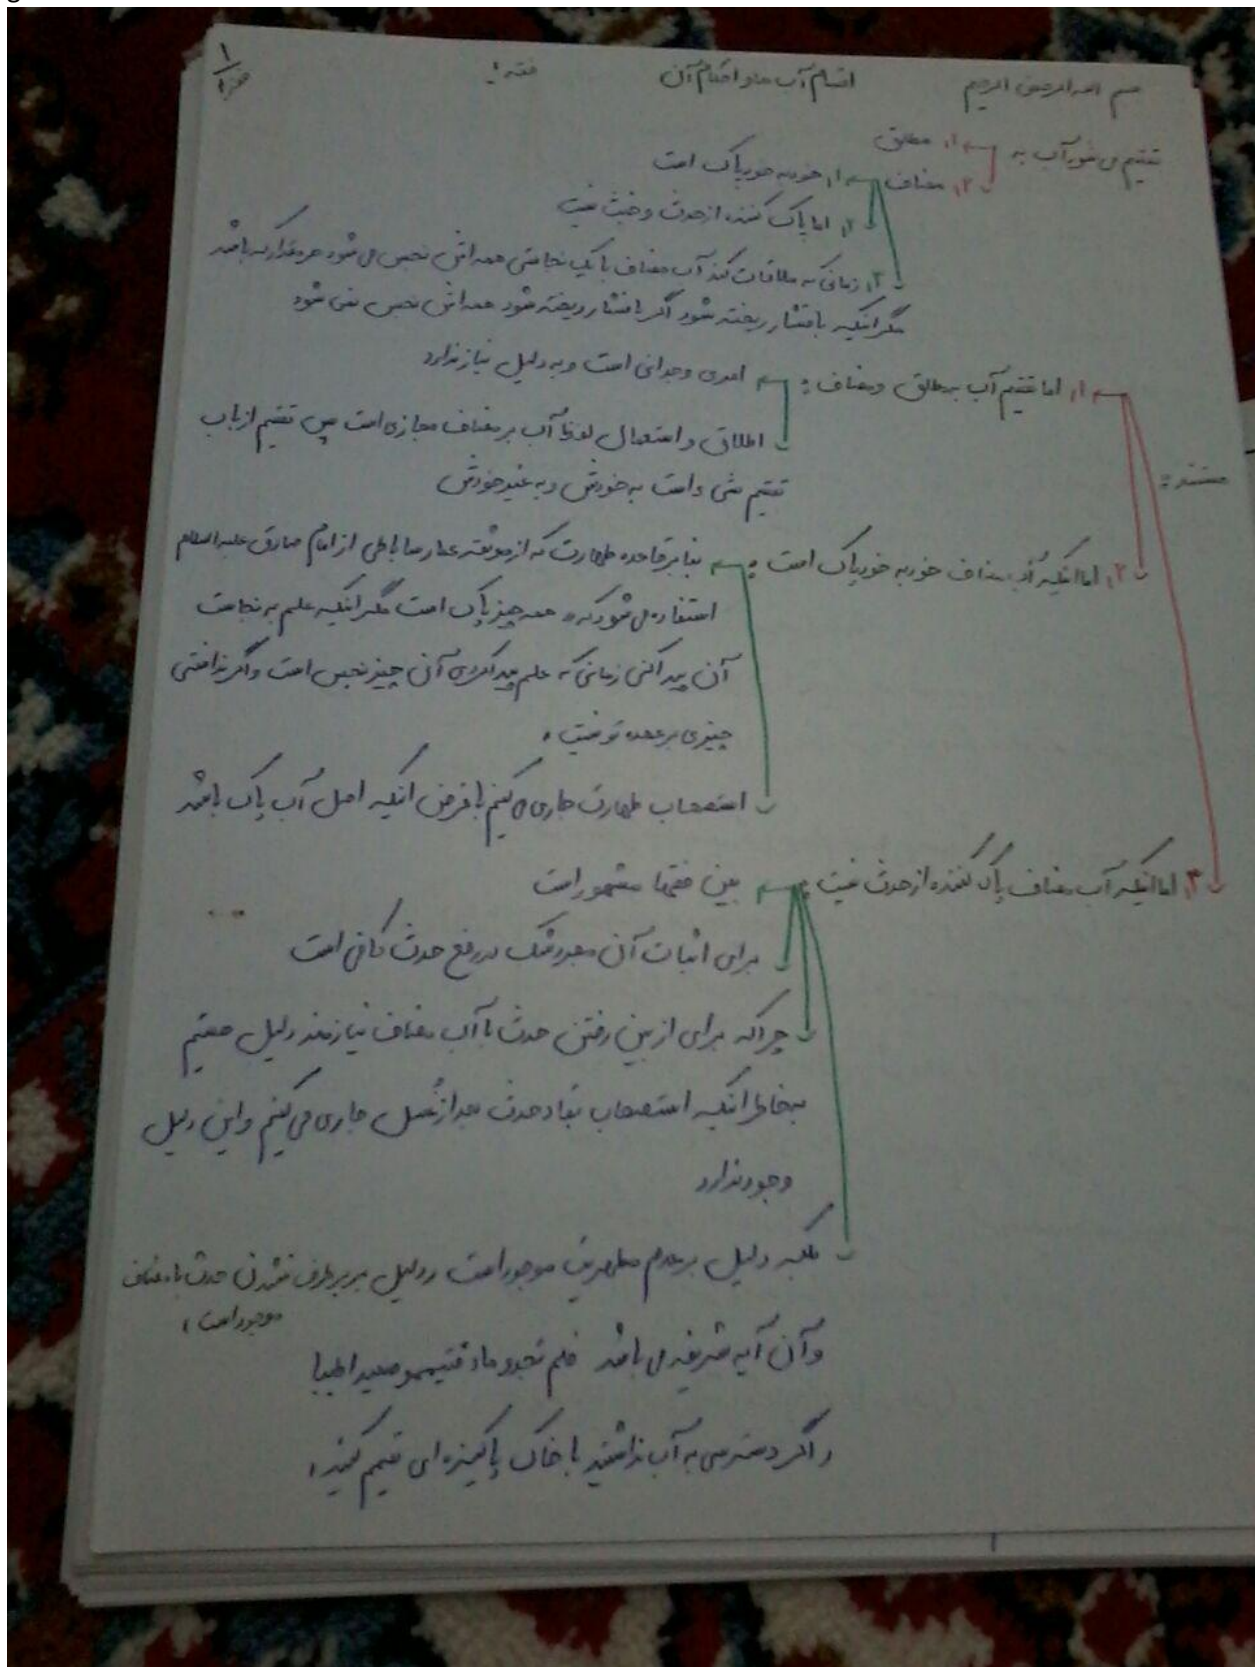 بسم الله الرحمن الرحیم اقسام آب ها و احکام آن فقه ۱
تقسیم می شود آب به
۱. مطلق
۲. مضاف
۱. خود به خود پاک است
۲. اما پاک کننده از حدث و خبث نیست
۳. زمانی که ملاقات کند آب مضاف با یک نجاستی همه اش نجس می شود هر مقدار که باشد
مگر اینکه با فشار ریخته شود اگر با فشار ریخته شود همه اش نجس نمی شود
مستند:
۱. اما تقسیم آب به مطلق و مضاف:
امری وجدانی است و به دلیل نیاز ندارد
اطلاق و استعمال لفظ آب بر مضاف مجازی است پس تقسیم از باب
تقسیم شیء است به خودش و به غیر خودش
۲. اما اینکه آب مضاف خود به خود پاک است:
بنابر قاعده طهارت که از موثقه عمار ساباطی از امام صادق علیه السلام
استفاده می شود که همه چیز پاک است مگر اینکه علم به نجاست
آن پیدا کنی زمانی که علم پیدا کردی آن چیز نجس است و اگر نداشتی
چیزی بر عهده تو نیست
استصحاب طهارت جاری می کنیم با فرض اینکه اصل آب پاک باشد
۳. اما اینکه آب مضاف پاک کننده از حدث نیست:
بین فقها مشهور است
برای اثبات آن مجرد شک در رفع حدث کافی است
چرا که برای از بین رفتن حدث با آب مضاف نیازمند دلیل هستیم
بخاطر اینکه استصحاب بقاء حدث بعد از غسل جاری می کنیم و این دلیل
وجود ندارد
بلکه دلیل بر عدم مطهریت موجود است و دلیل بر برطرف نشدن حدث با مضاف
موجود است،
و آن آیه شریفه می باشد فلم تجدو ماء فتیممو صعیدا طیبا
و اگر دسترسی به آب نداشتید با خاک پاکیزه ای تیمم کنید،